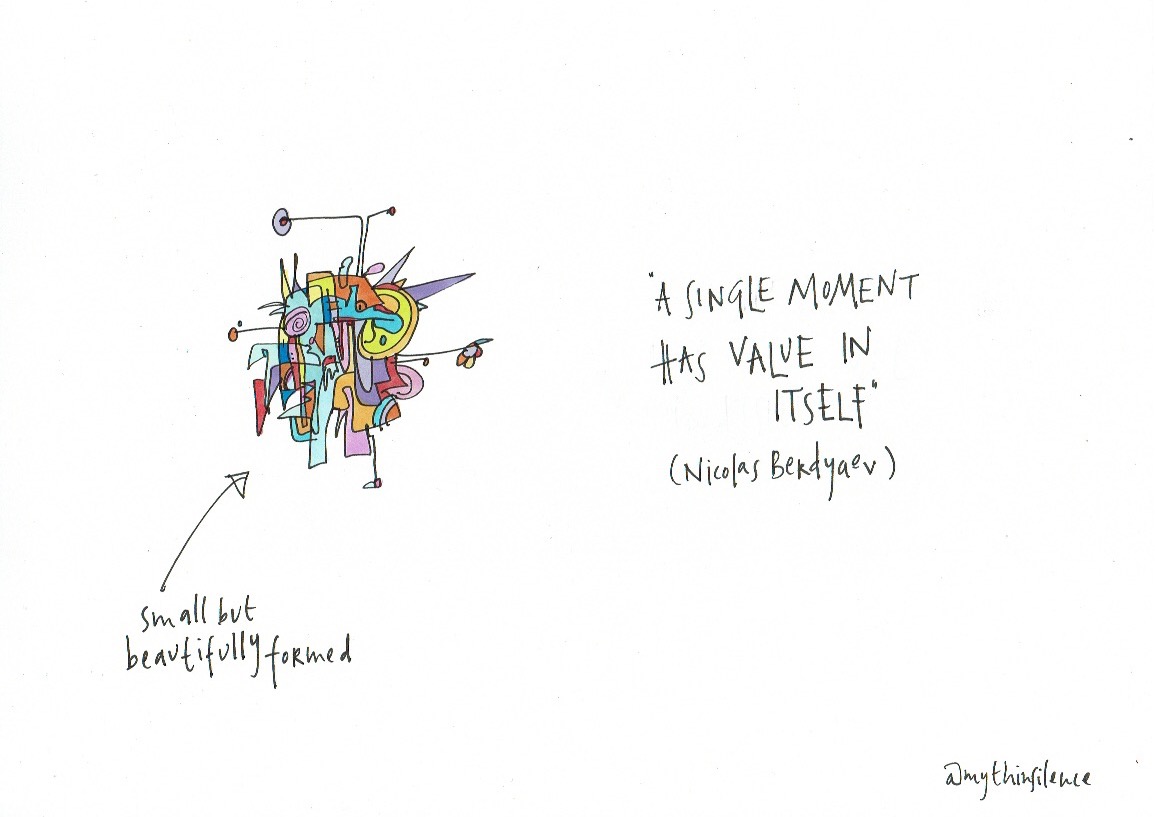 "A SINGLE MOMENT
HAS VALUE IN
ITSELF"
(Nicolas Berdyaev)
small but
beautifully formed
@mythinsilence